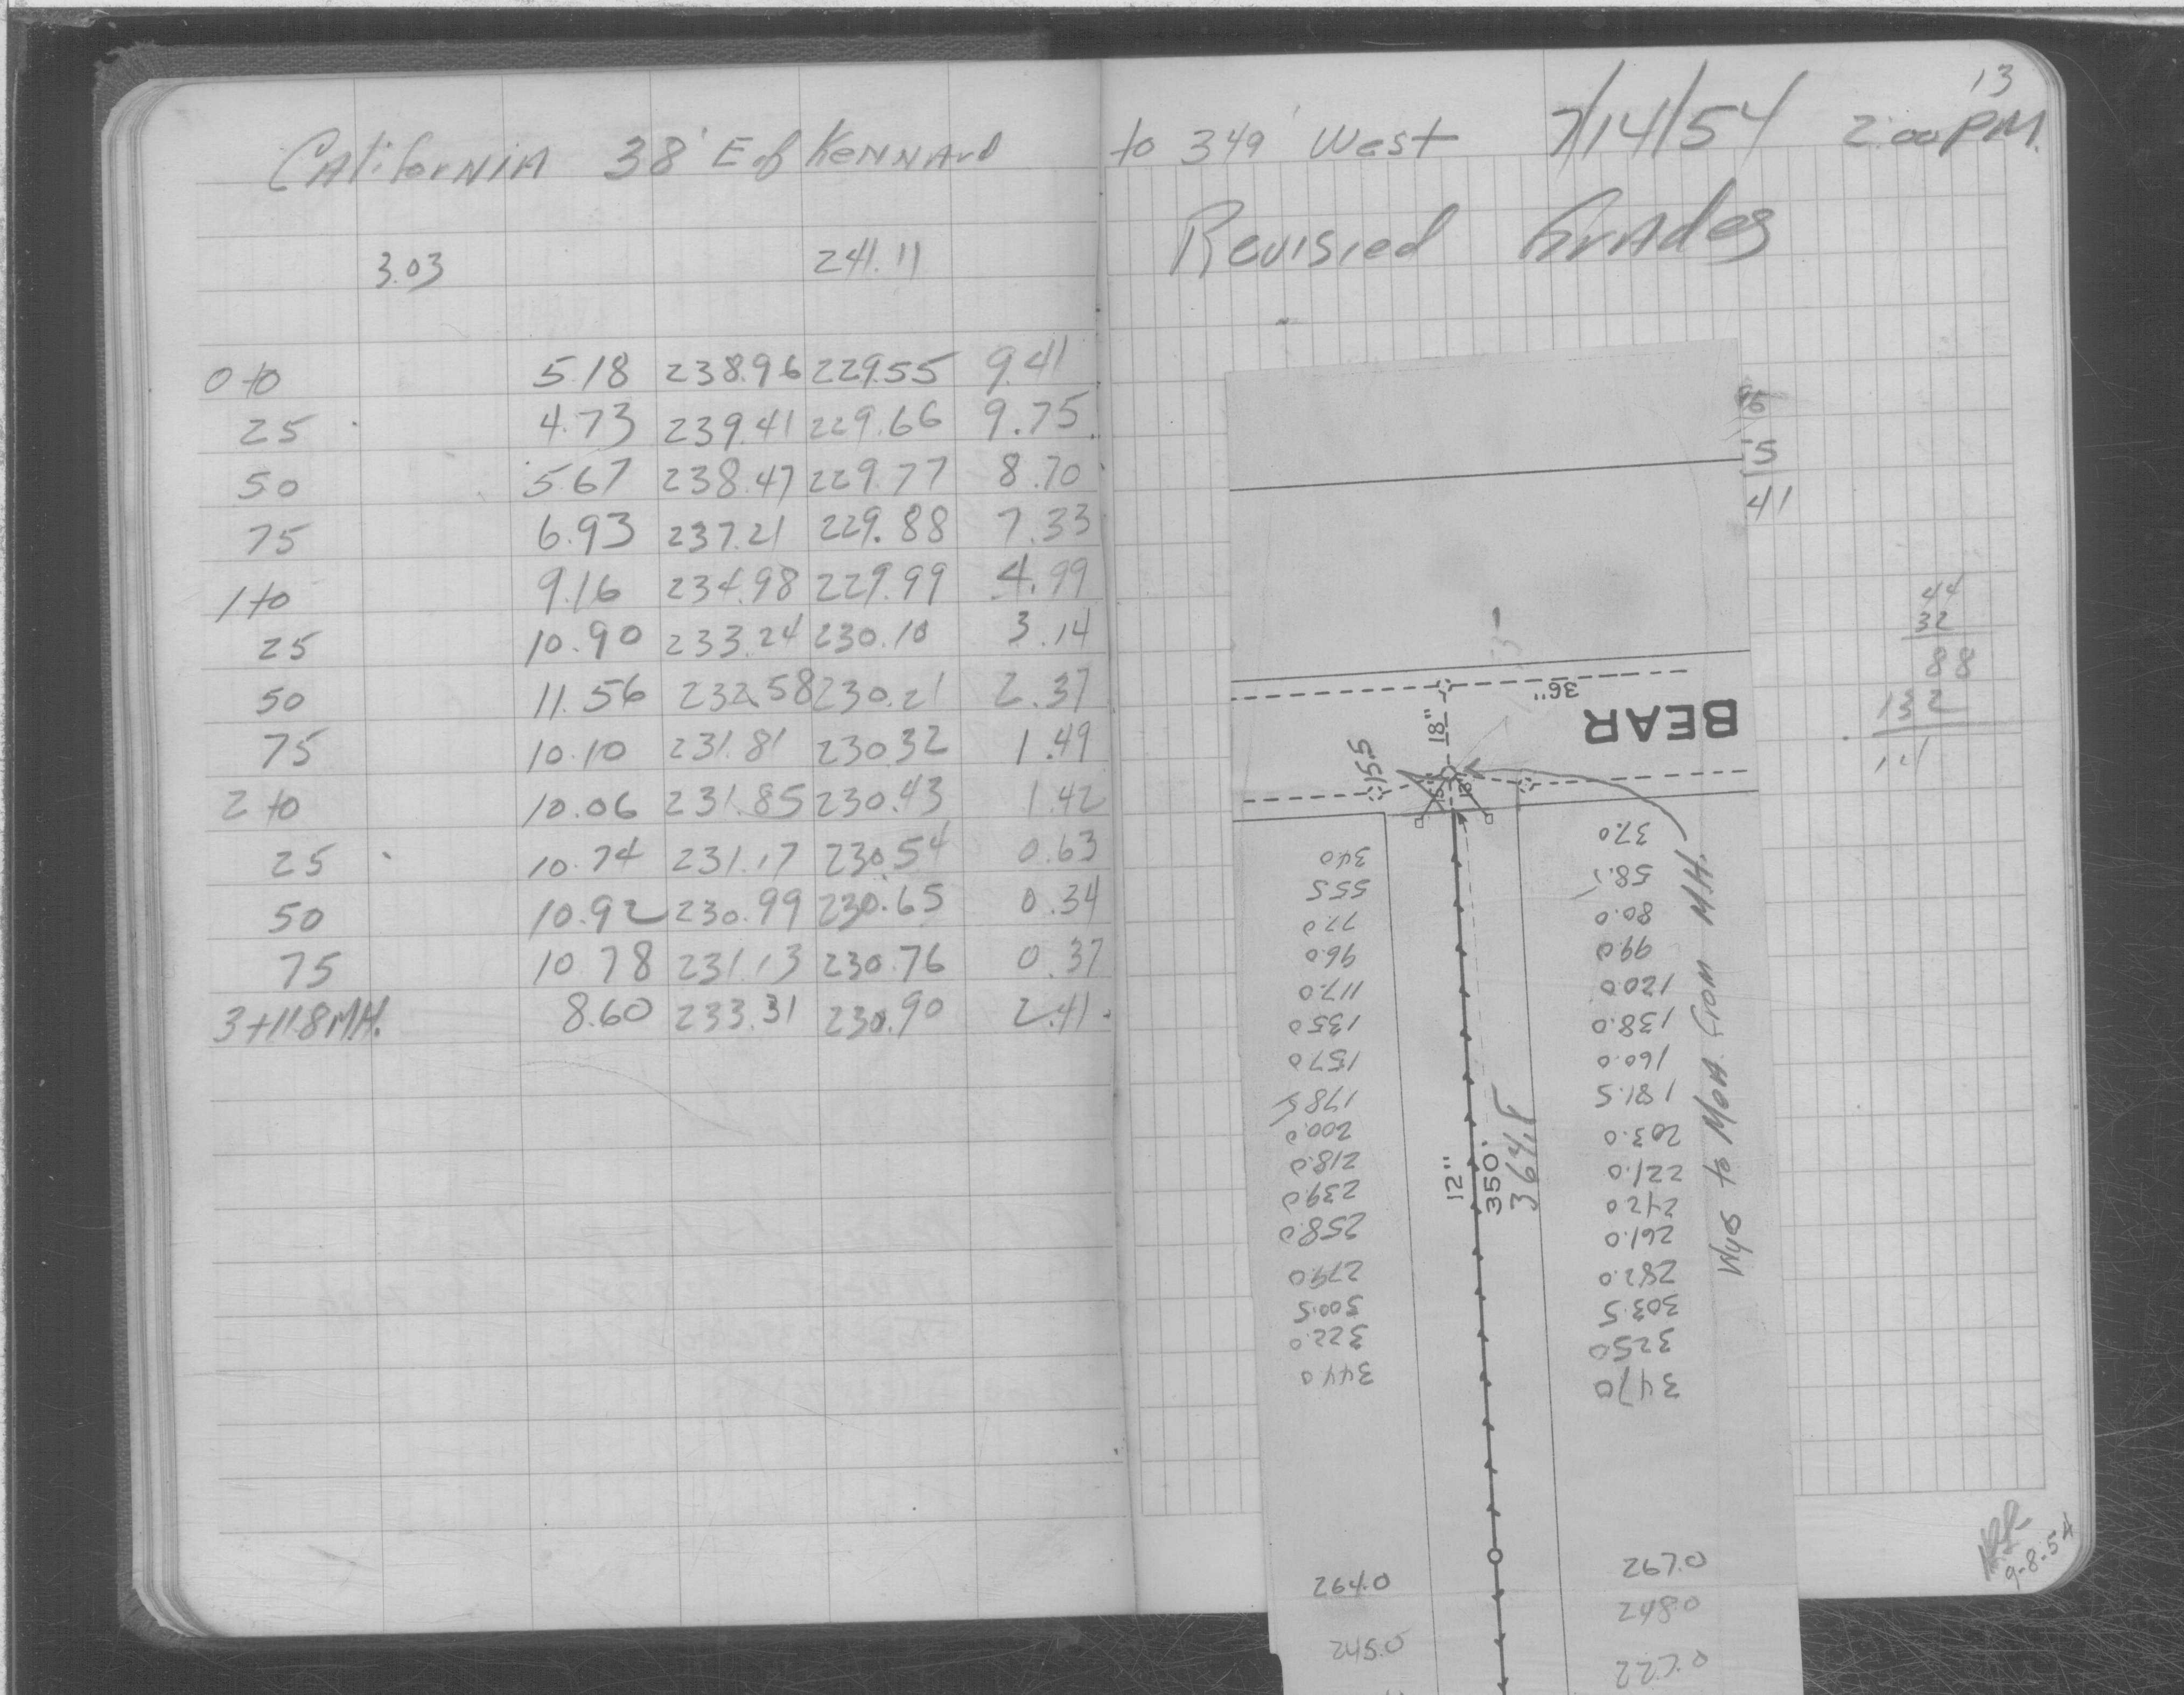 13
CAliforNIA 38' E of KeNNArd to 349' West 7/14/54 2:00 PM.
Revisied GrAdes
3.03 241.11
0+0 5.18 238.96 229.55 9.41
25 4.73 239.41 229.66 9.75
50 5.67 238.47 229.77 8.70
75 6.93 237.21 229.88 7.33
1+0 9.16 234.98 229.99 4.99
25 10.90 233.24 230.10 3.14
50 11.56 232.58 230.21 2.37
75 10.10 231.81 230.32 1.49
2+0 10.06 231.85 230.43 1.42
25 10.74 231.17 230.54 0.63
50 10.92 230.99 230.65 0.34
75 10.78 231.13 230.76 0.37
3+11.8 M.H. 8.60 233.31 230.90 2.41
5
41
44
32
88
132
36"
18"
BEAR
155
34.0 37.0
55.5 58.5
77.0 80.0
96.0 99.0
117.0 120.0
135.0 138.0
157.0 160.0
178.5 181.5
200.0 203.0
218.0 221.0
239.0 242.0
258.0 261.0
279.0 282.0
300.5 303.5
322.0 325.0
344.0 347.0
12"
350'
364.5
Wyes to MeaA. from M.H.
264.0 267.0
245.0 248.0
227.0
9-8-54